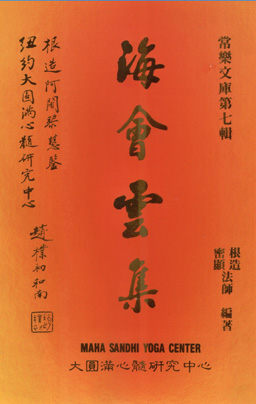 常樂文庫第七輯
海會雲集
根造法師
密顯
編著
根造阿闍黎慧鑒
紐約大圓滿心髓研究中心
趙樸初和南
MAHA SANDHI YOGA CENTER
大圓滿心髓研究中心